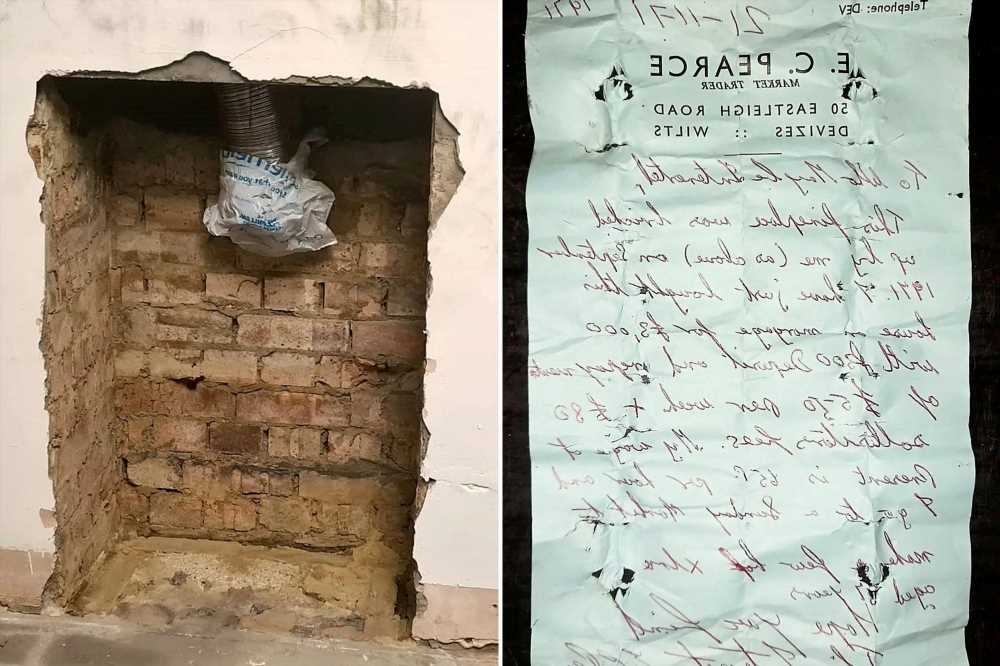 Telephone: DEV 1971
E. C. PEARCE
MARKET TRADER
50 EASTLEIGH ROAD
DEVIZES :: WILTS
To Who May be Interested,
This fireplace was bricked
up by me (as above) on September
1971. I have just bought this
house on morgage for £3,000
with £300 Deposit and repayments
of £5.50 per week + £80
solicitors fees. My wage at
Present is 65P. per hour and
I go to a Sunday Market to
make a few xtra
aged years
Hope you find